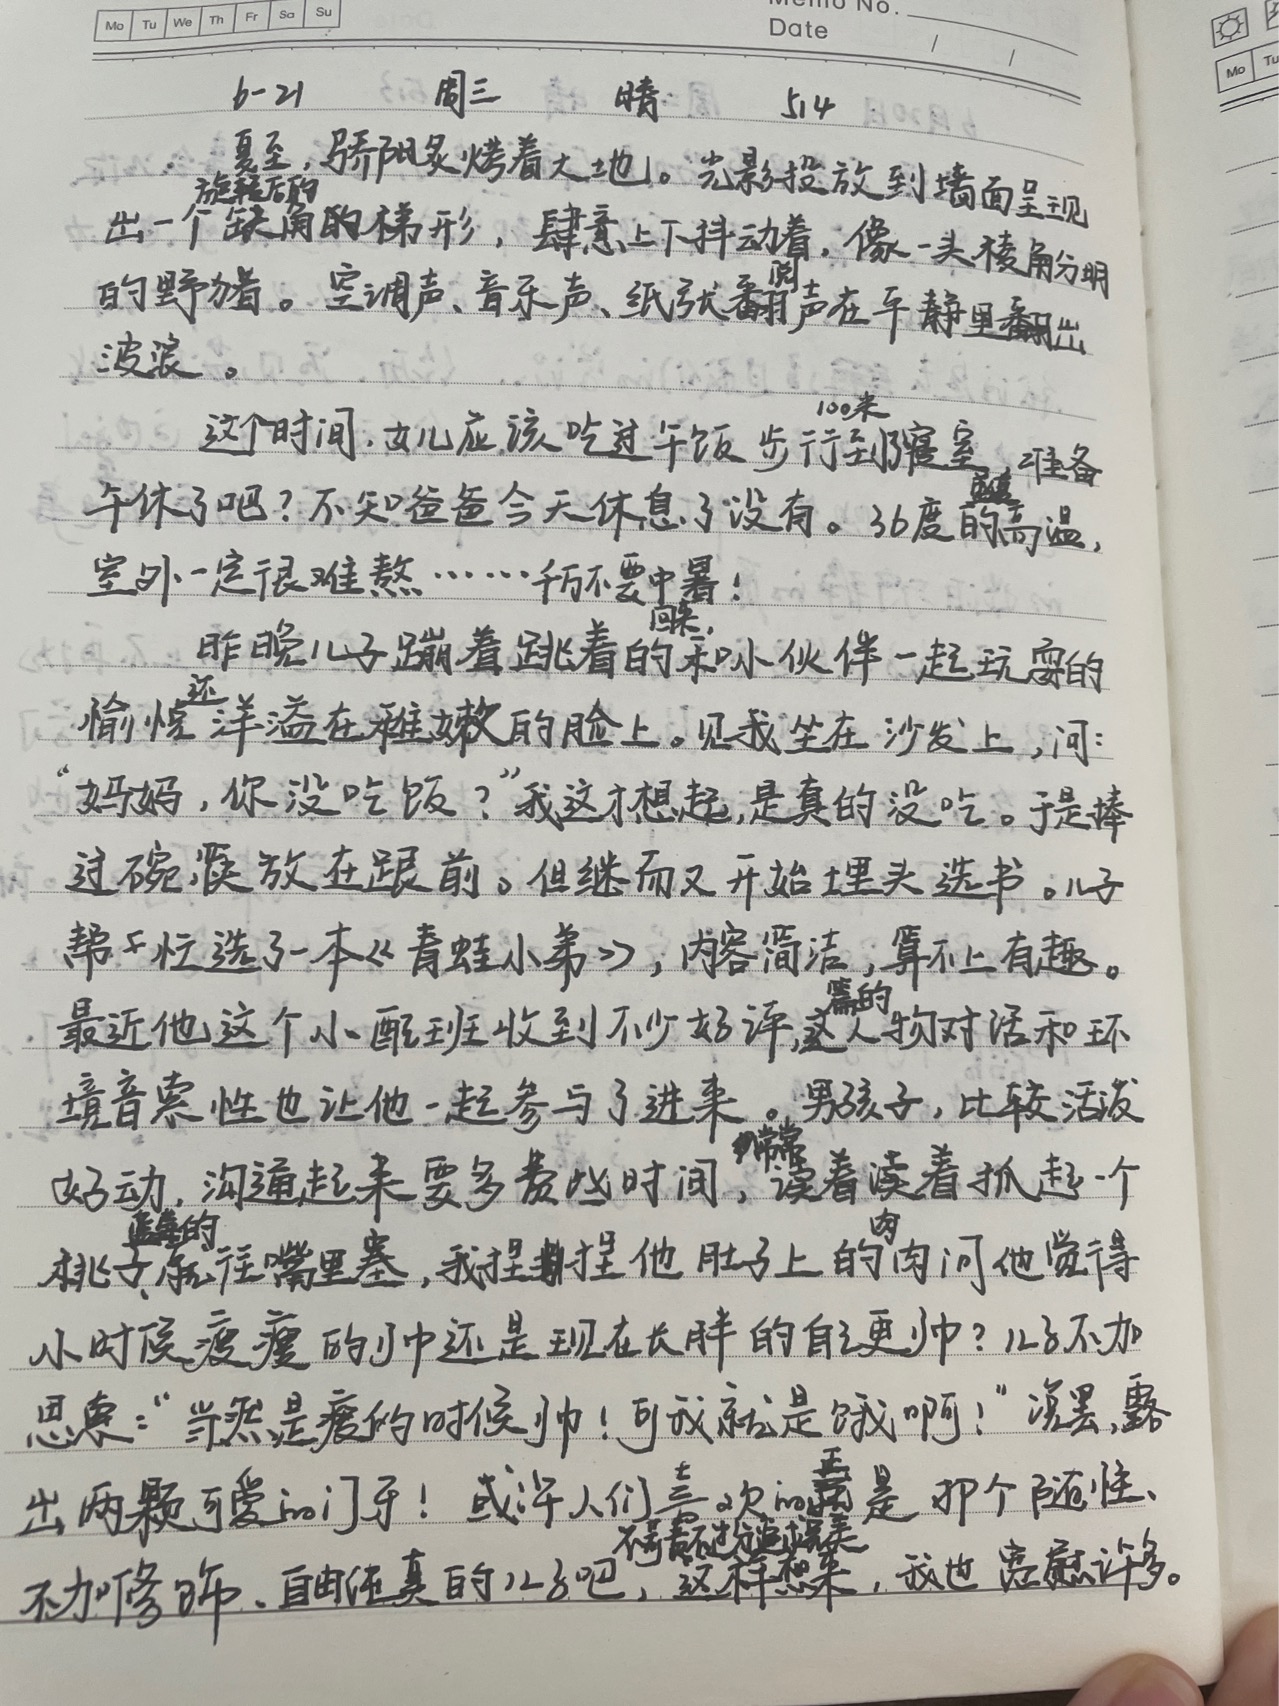 Mo Tu We Th Fr Sa Su
Memo No.
Date / /
Mo Tu
6-21 周三 晴 514
夏至，骄阳炙烤着大地。光影投放到墙面呈现
旋转后的
出一个缺角的梯形，肆意上下抖动着，像一头棱角分明
阅
的野兽。空调声、音乐声、纸张翻声在平静里翻出
波浪。
100米
这个时间，女儿应该吃过午饭步行到寝室准备
午休了吧？不知爸爸今天休息了没有。36度的高温，
室外一定很难熬……千万不要中暑！
回来，
昨晚儿子蹦着跳着的和小伙伴一起玩耍的
还
愉悦洋溢在稚嫩的脸上。见我坐在沙发上，问：
“妈妈，你没吃饭？”我这才想起，是真的没吃。于是捧
过碗筷放在跟前。但继而又开始埋头选书。儿子
帮忙选了一本《青蛙小弟》，内容简洁，算不上有趣。
篇的
最近他这个小配班收到不少好评，这人物对话和环
境音索性也让他一起参与了进来。男孩子，比较活泼
常常
好动，沟通起来要多费些时间，读着读着抓起一个
肉
桃子就往嘴里塞，我捏捏他肚子上的肉问他觉得
小时候瘦瘦的帅还是现在长胖的自己更帅？儿子不加
思索：“当然是瘦的时候帅！可我就是饿啊！”说罢，露
出两颗可爱的门牙！或许人们喜欢的正是那个随性、
不加修饰、自由纯真的儿子吧，这样想来，我也宽慰许多。